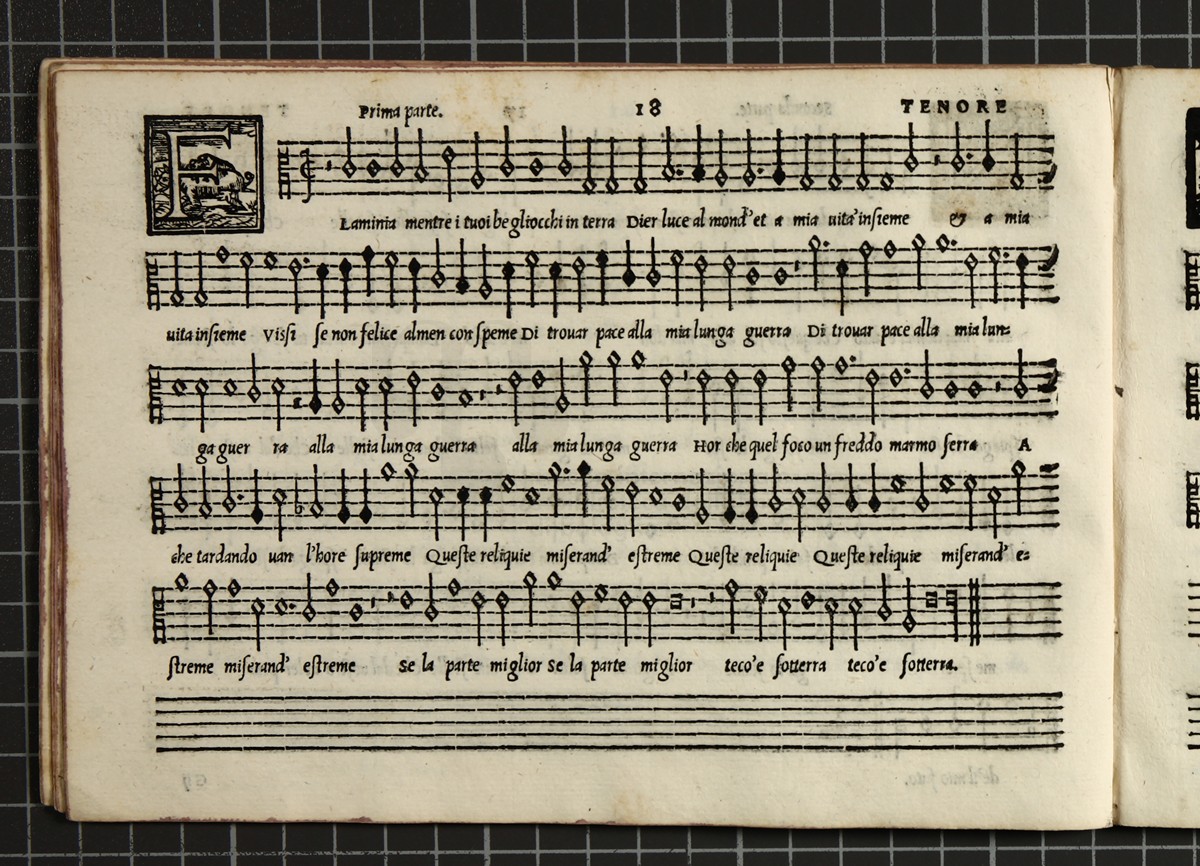 Prima parte. 18 TENORE
FLaminia mentre i tuoi be gliocchi in terra Dier luce al mond' et a mia uita' insieme & a mia
uita insieme Vissi se non felice almen con speme Di trouar pace alla mia lunga guerra Di trouar pace alla mia lun=
ga guer ra alla mia lunga guerra alla mia lunga guerra Hor che quel foco un freddo marmo serra A
che tardando uan l'hore supreme Queste reliquie miserand' estreme Queste reliquie Queste reliquie miserand' e=
streme miserand' estreme se la parte miglior se la parte miglior teco'e sotterra teco'e sotterra.